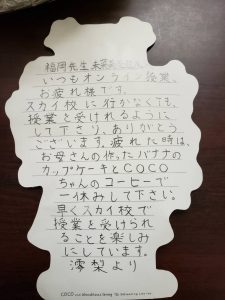 福岡先生
いつもオンライン授業、
お疲れ様です。
スカイ校に行かなくても、
授業を受けれるように
して下さり、ありがとう
ございます。疲れた時は、
お母さんの作ったバナナの
カップケーキとCOCO
ちゃんのコーヒーで
一休みして下さい。
早くスカイ校で
授業を受けられ
ることを楽しみ
にしています。
澪梨より
COCO